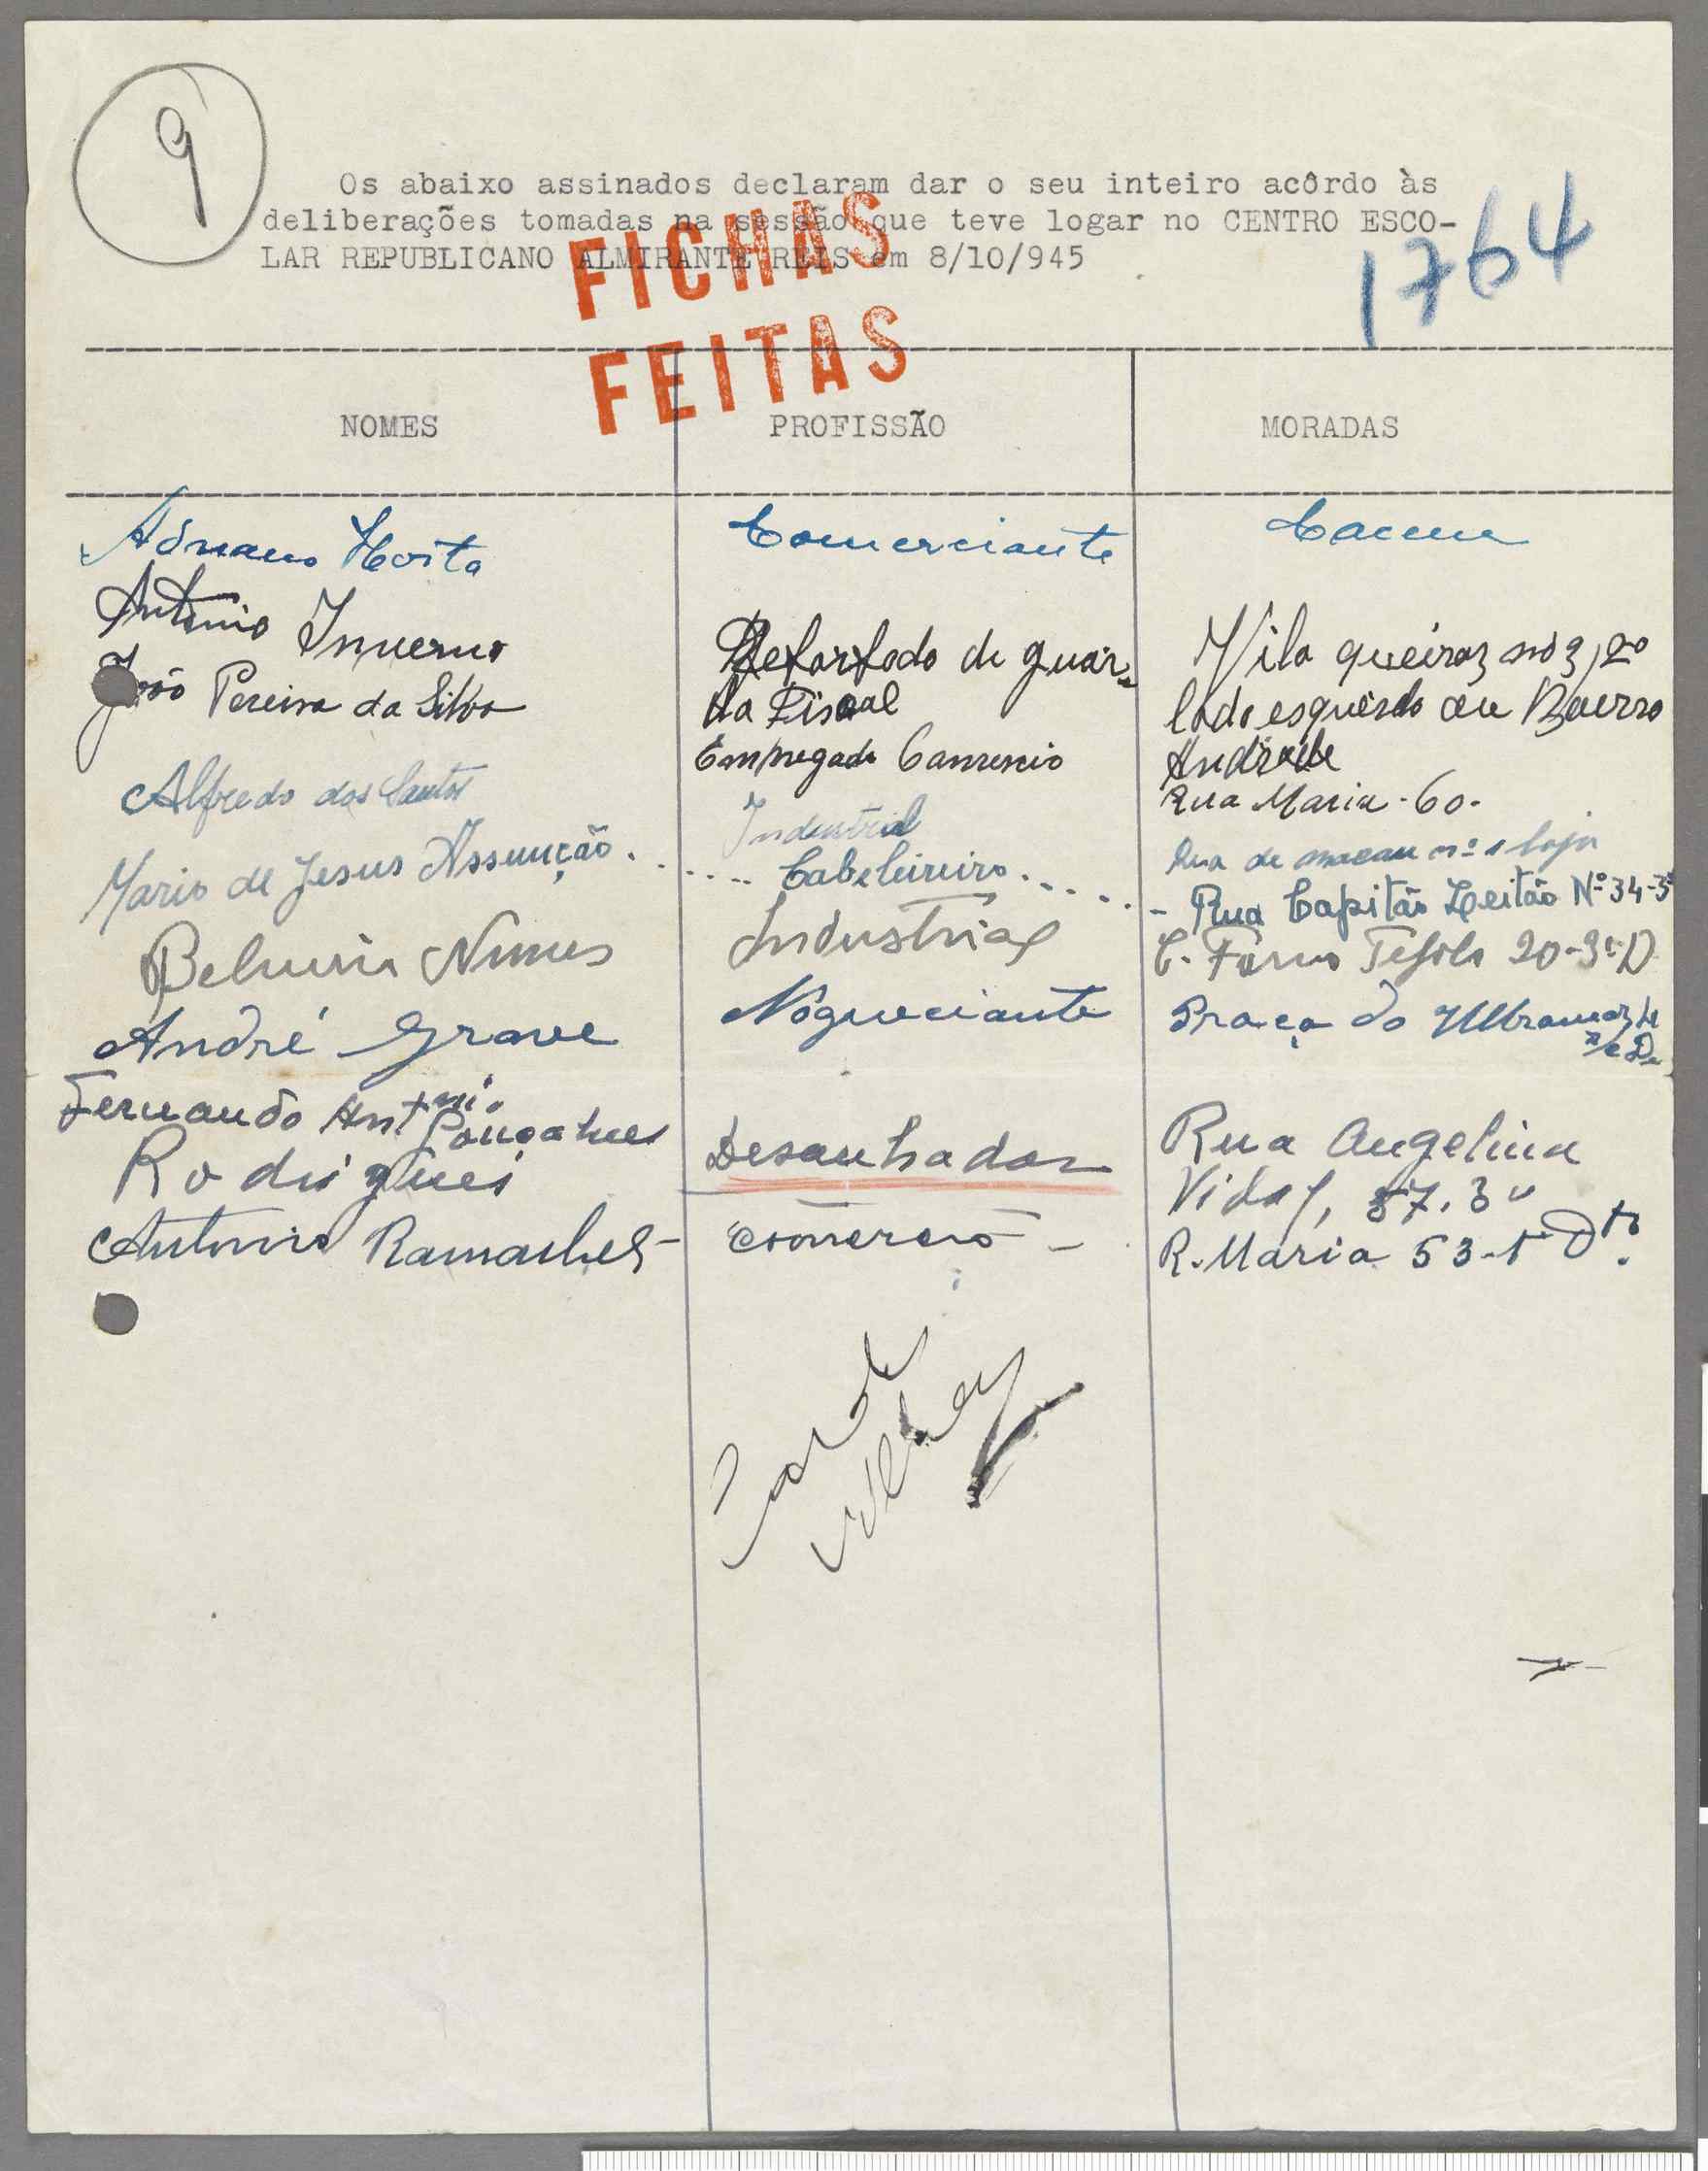 9
Os abaixo assinados declaram dar o seu inteiro acôrdo às
deliberações tomadas na sessão que teve logar no CENTRO ESCO-
LAR REPUBLICANO ALMIRANTE REIS em 8/10/945
1764
FICHAS
FEITAS
NOMES PROFISSÃO MORADAS
Adriano Horta Comerciante Cacem
Antonio Inverno Reformado de guar- Vila queiroz nº 3, 2º
da Fiscal lado esquerdo au Bairro
Andrade
João Pereira da Silva Empregado Comercio Rua Maria - 60 -
Alfredo dos Santos Industrial Rua de macau nº 1 loja
Mario de Jesus Assunção . . . . . . Cabeleireiro . . . . . - Rua Capitão Leitão Nº 34-3º
Nunes Industrial C. Forno Tejolo 20-3º D
André Grave Nogueciante Praça do Ultramar, 4
r/c D.
Fernando Antº Gonçalves
Rodrigues Desanhador Rua Angelina
Vidal, 57, 3º
Antonio Ramalhe comercio - R. Maria 53-1º Dto.